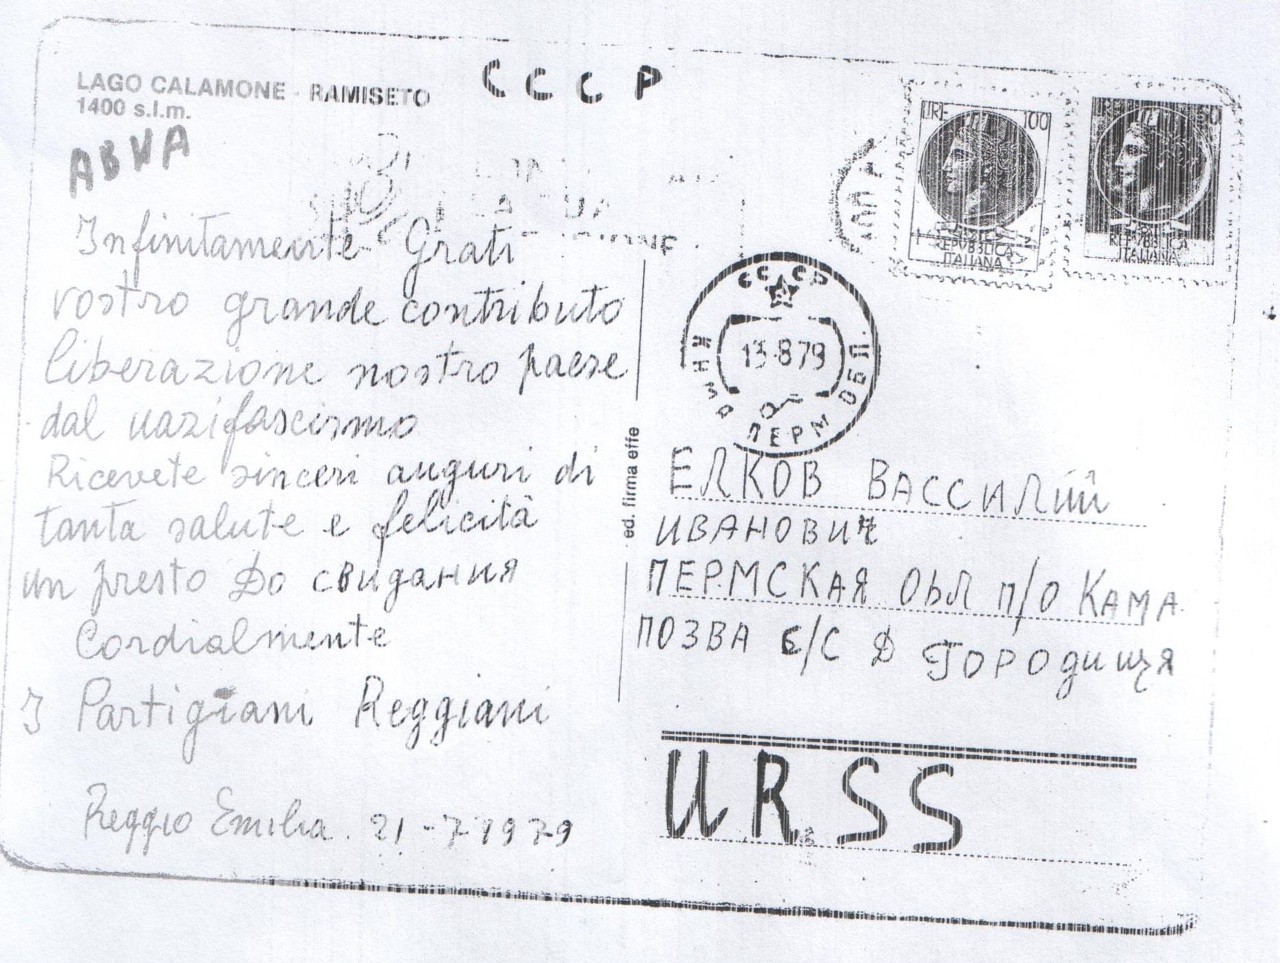 LAGO CALAMONE - RAMISETO
1400 s.l.m.
АВИА
СССР
Infinitamente Grati
vostro grande contributo
liberazione nostro paese
dal nazifascismo
Ricevete sinceri auguri di
tanta salute e felicità
un presto До свидания
Cordialmente
I Partigiani Reggiani
Reggio Emilia 21-7-1979
ed. firma effe
LIRE 100
REPVBBLICA
ITALIANA
LIRE 50
REPVBBLICA
ITALIANA
СССР
13-8 79
ПЕРМ ОБЛ.
ЕЛКОВ ВАССИЛИЙ
ИВАНОВИЧ
ПЕРМСКАЯ ОБЛ П/О КАМА
ПОЗВА С/С Д ГОРОДИЩЯ
URSS